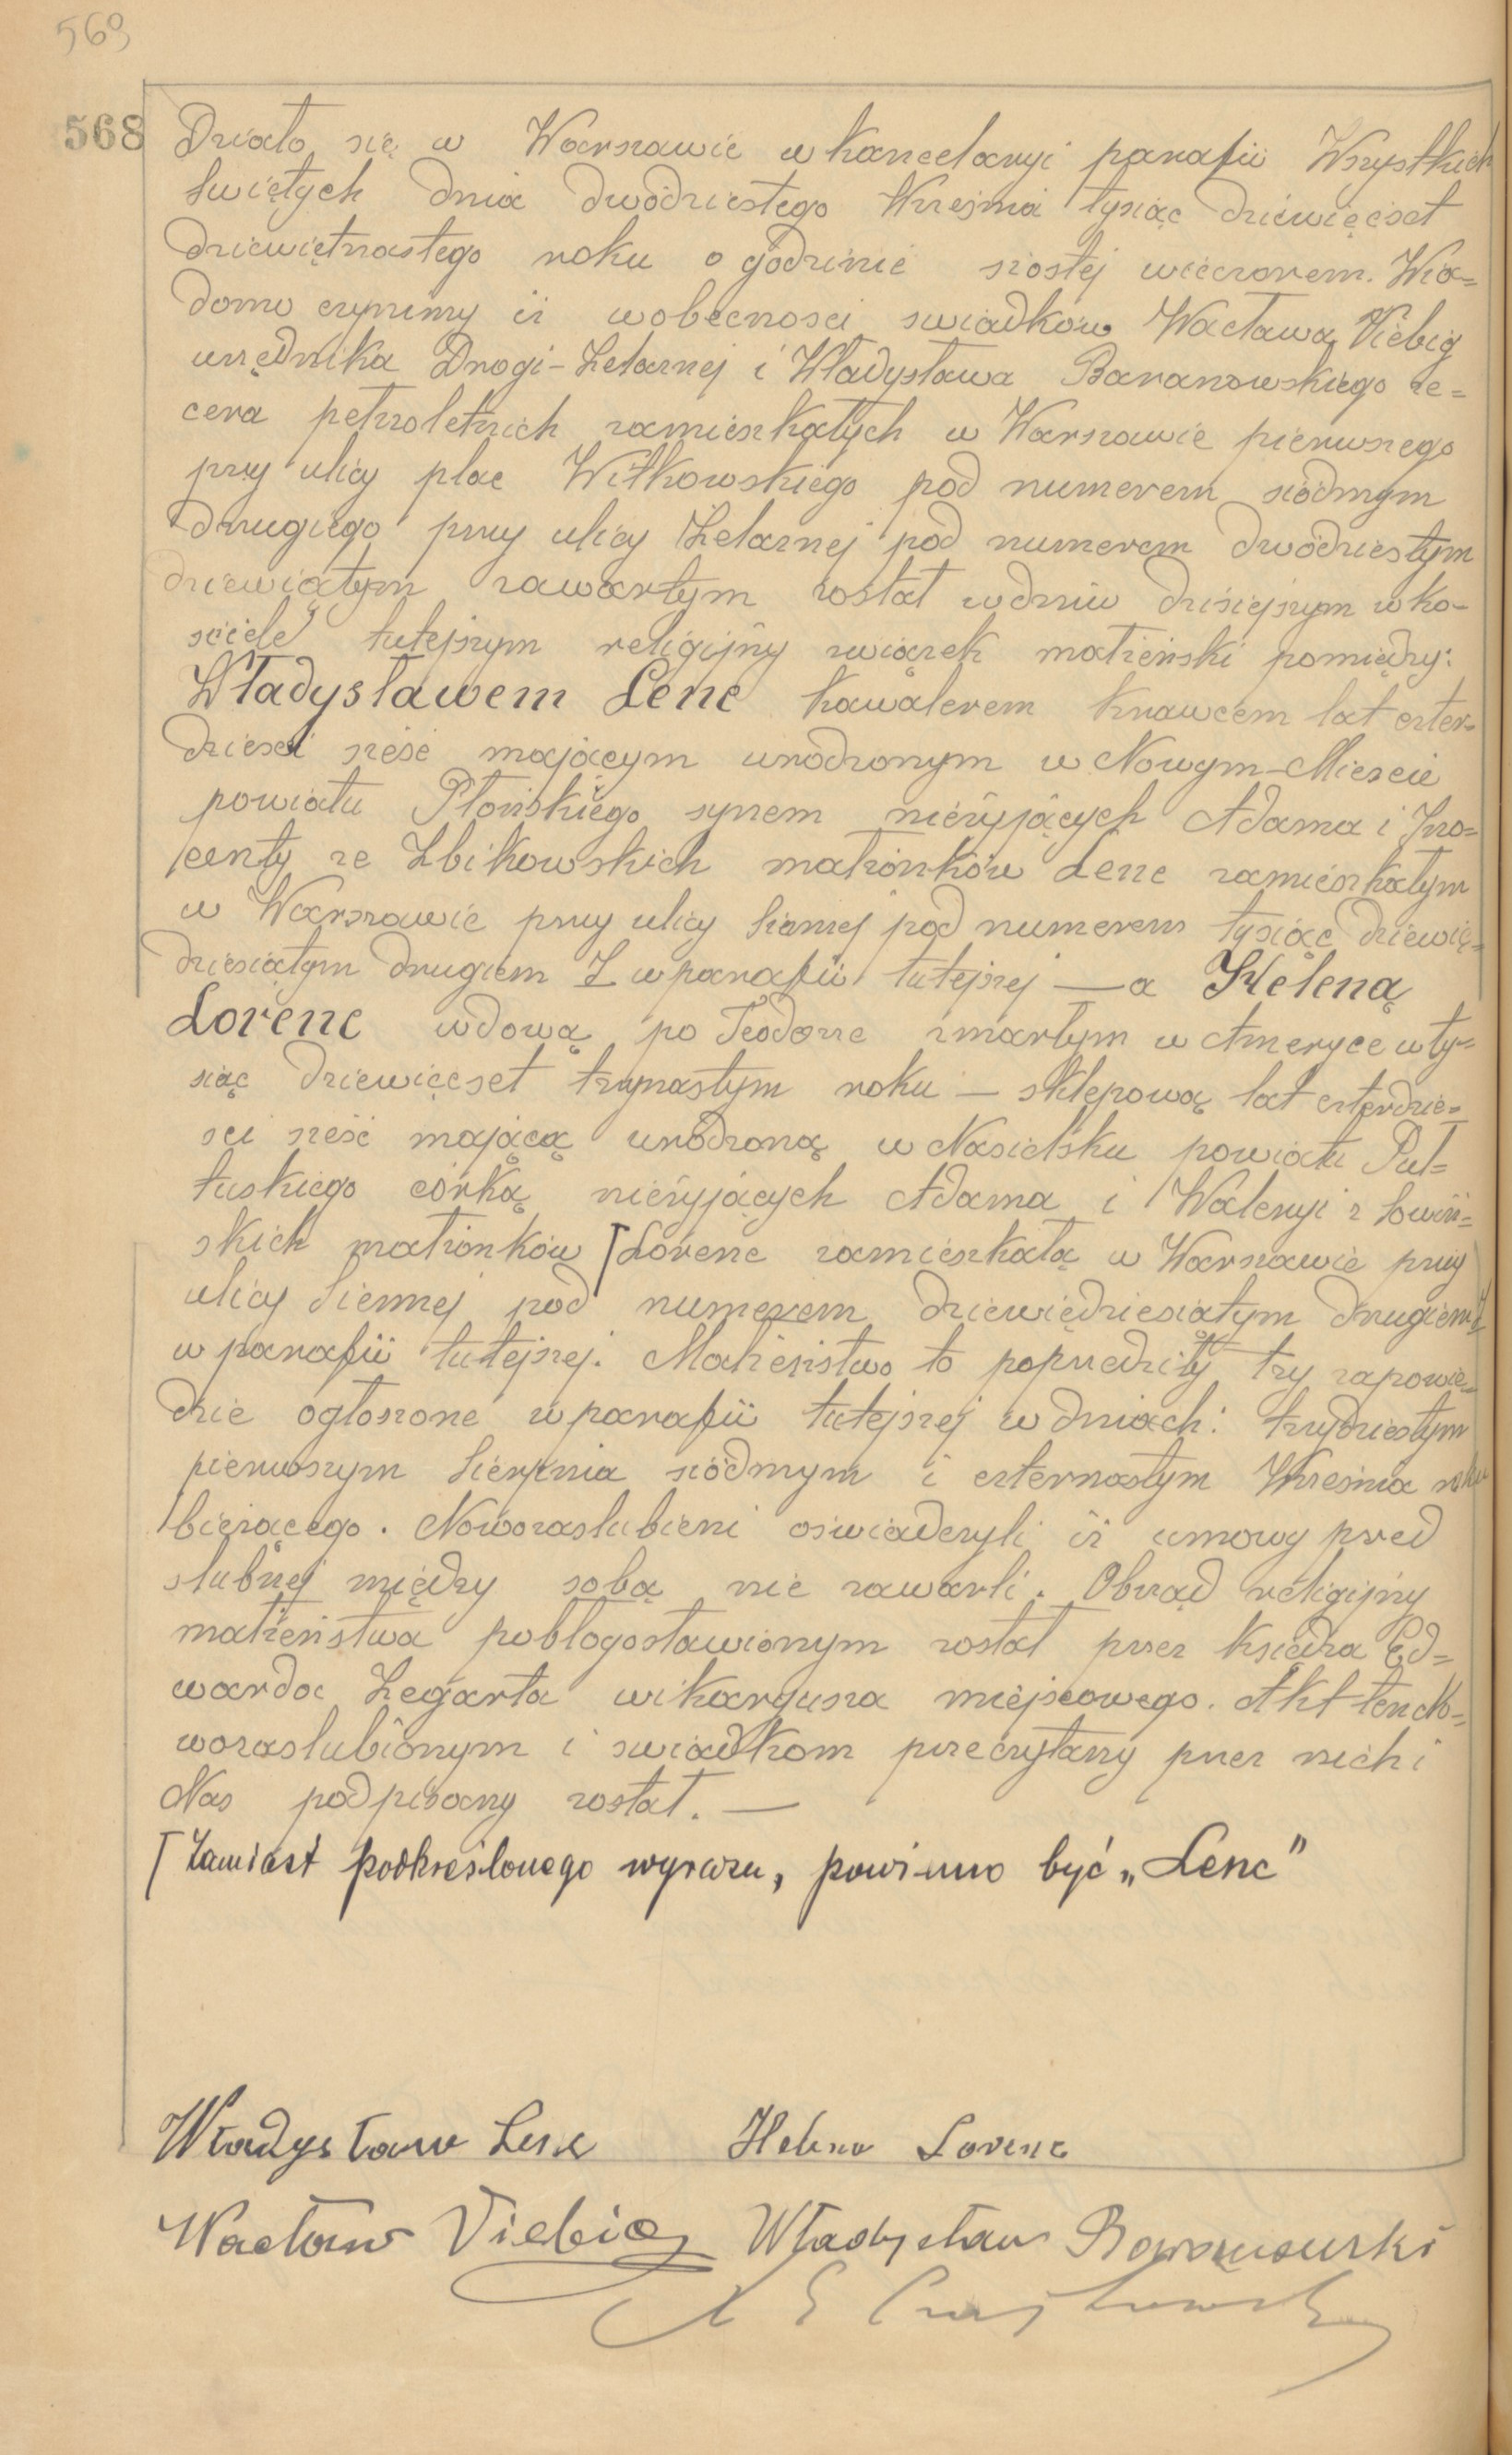 569
568
Działo się w Warszawie w kancelaryi parafii Wszystkich
Swiętych dnia dwódziestego Wrzesnia tysiąc dziewięcset
dziewiętnastego roku o godzinie szostej wieczorem. Wia=
domo czynimy iż wobecnosci swiadków Wacława Viebig
urzędnika Drogi-Żelaznej i Władysława Baranowskiego ze=
cera pełnoletnich zamieszkałych w Warszawie pierwszego
przy ulicy plac Witkowskiego pod numerem siódmym
drugiego przy ulicy Żelaznej pod numerem dwódziestym
dziewiątym zawartym został w dniu dzisiejszym w ko-
sciele tutejszym religijny związek małżeński pomiędzy:
Władysławem Lenc kawalerem krawcem lat czter-
dziesci sześć mającym urodzonym w Nowym-Miescie
powiatu Płońskiego synem nieżyjących Adama i Ino=
centy ze Zbikowskich małżonków Lenc zamieszkałym
w Warszawie przy ulicy Siennej pod numerem tysiąc dziewię=
dziesiątym drugiem Z w parafii tutejszej — a Heleną
Lorenc wdową po Teodorze zmarłym w Ameryce w ty=
siąc dziewięcset trzynastym roku — sklepową lat czterdzie=
sci sześć mającą urodzoną w Nasielsku powiatu Puł=
tuskiego córką nieżyjących Adama i Waleryi z Sowiń=
skich małżonków ⌈Lorenc zamieszkałą w Warszawie przy
ulicy Siennej pod numerem dziewiędziesiątym drugiem
w parafii tutejszej. Małżeństwo to poprzedziły trzy zapowie=
dzie ogłoszone w parafii tutejszej w dniach: trzydziestym
pierwszym Sierpnia siódmym i czternastym Wrzesnia roku
bieżącego. Nowozaslubieni oswiadczyli iż umowy przed
slubnej między sobą nie zawarli. Obrząd religijny
małżeństwa pobłogosławionym został przez księdza Ed=
warda Żegarta wikaryusza miejscowego. Akt ten No=
wozaslubionym i swiadkom przeczytany przez nich i
Nas podpisany został. —
⌈Zamiast podkreślonego wyrazu, powinno być „Lenc”
Władysław Lenc Helena Lorenc
Wacław Viebig Władysław Baranowski